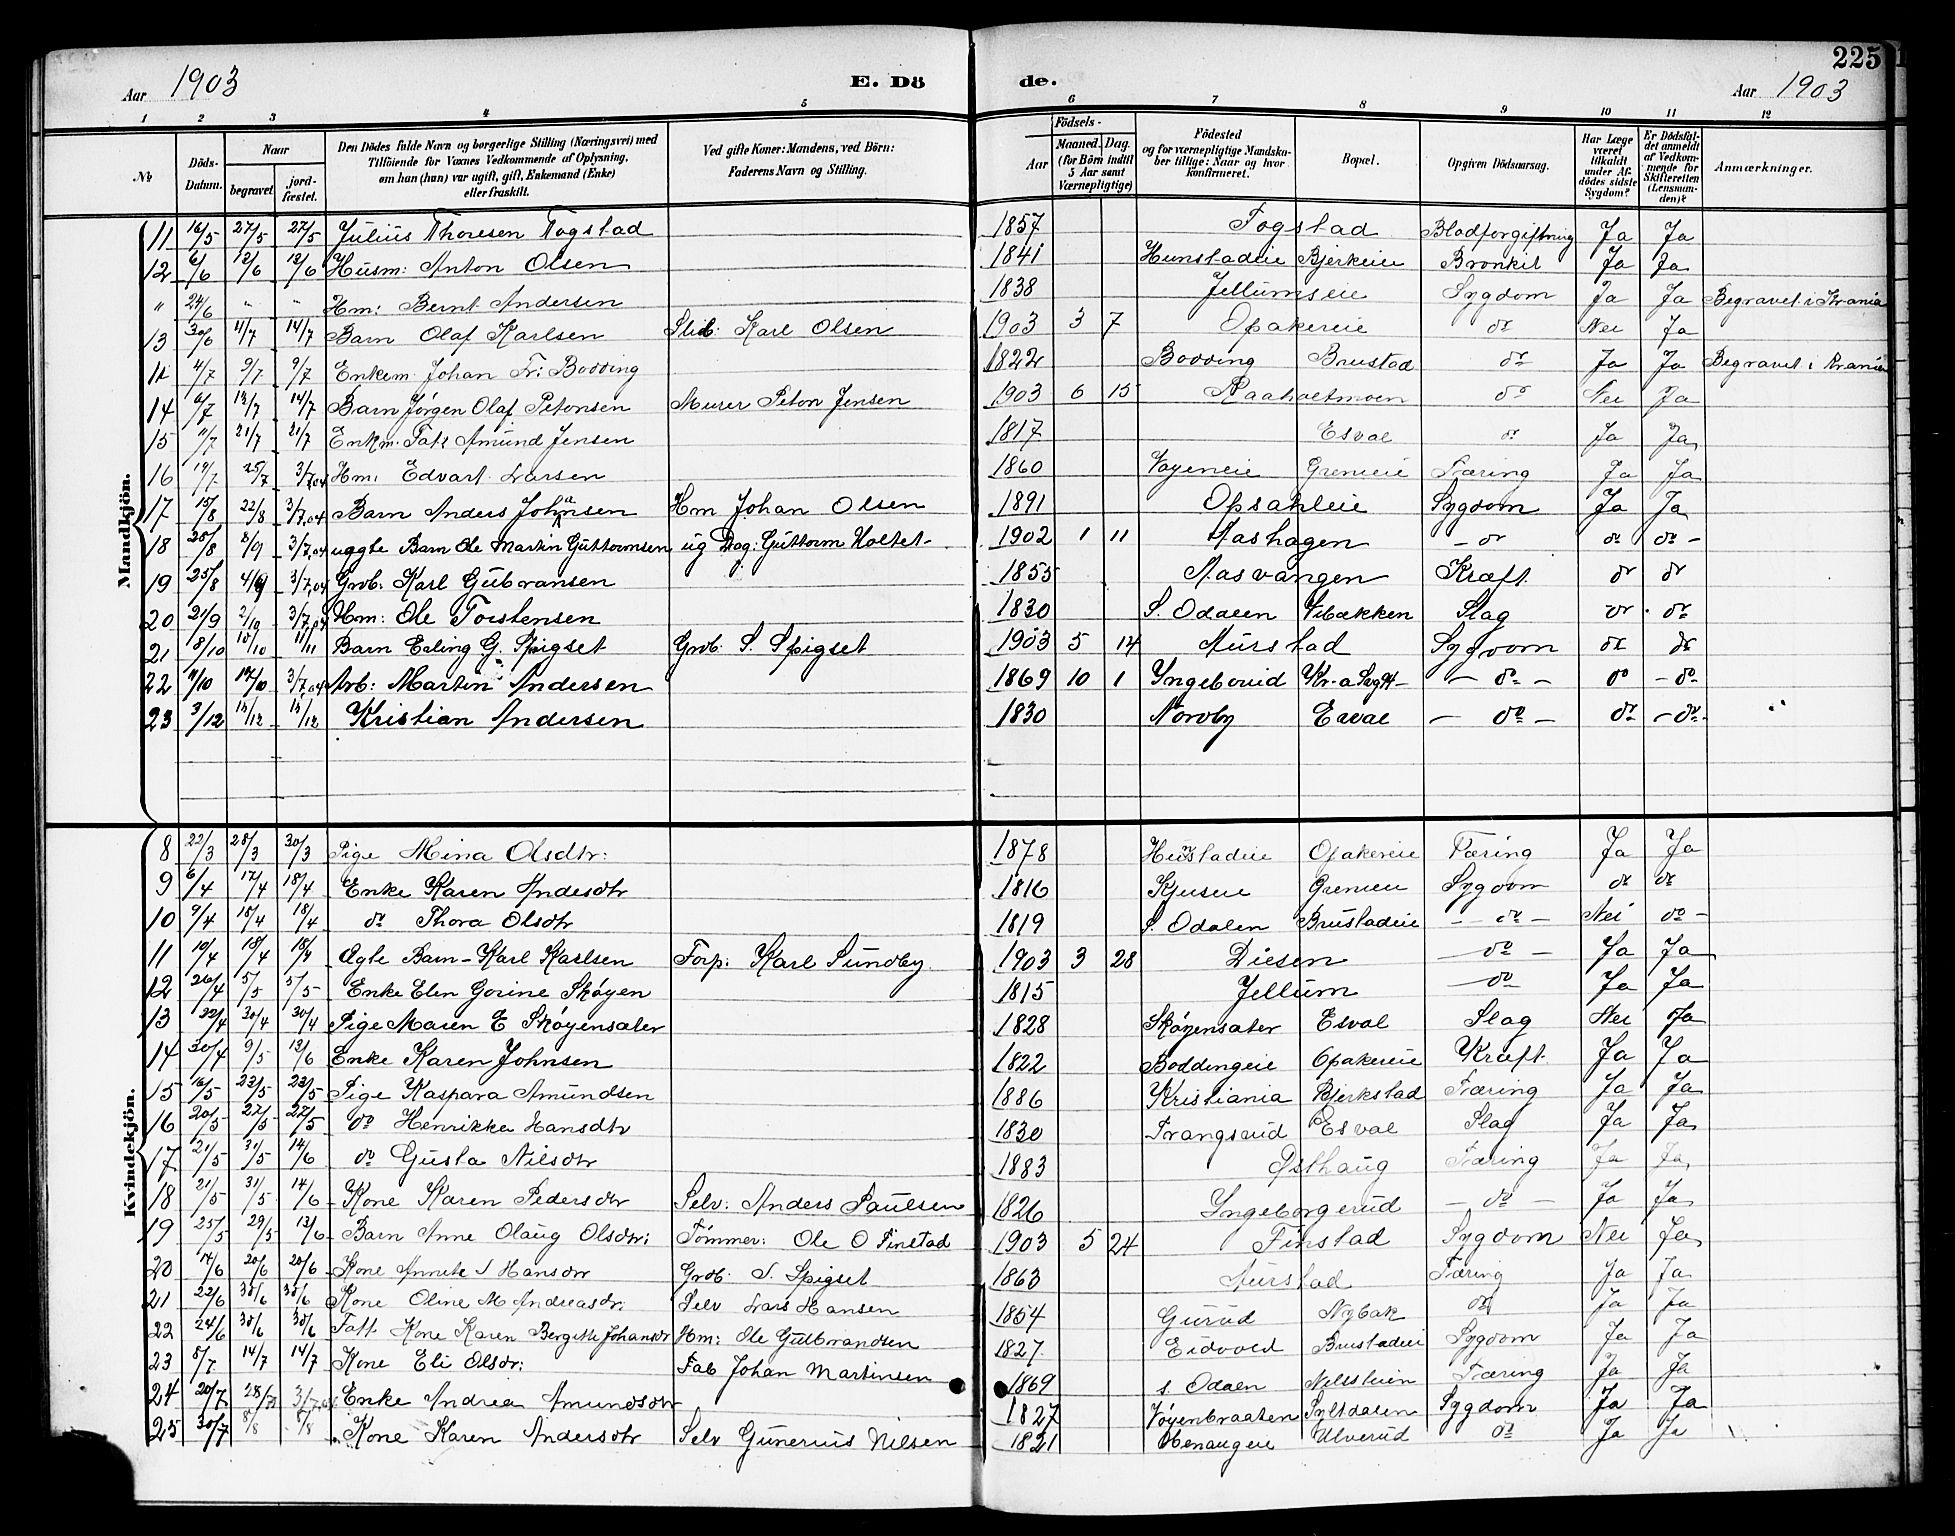 225
Aar 1903 E. Dö de. Aar 1903
1 2 3 4 5 6 7 8 9 10 11 12
No Döds-Datum. Naar begravet jordfæstet. Den Dödes fulde Navn og borgerlige Stilling (Næringsvei) med Tilföiende for Voxnes Vedkommende af Oplysning, om han (hun) var ugift, gift, Enkemand (Enke) eller fraskilt. Ved gifte Koner: Mandens, ved Börn: Faderens Navn og Stilling. Födsels- Aar Maaned. Dag. (for Börn indtil 5 Aar samt Værnepligtige) Födested og for værnepligtige Mandskaber tillige: Naar og hvor konfirmeret. Bopæl. Opgiven Dödsaarsag. Har Læge været tilkaldt under Afdödes sidste Sygdom? Er Dödsfaldet anmeldt af Vedkommende for Skifteretten (Lensmanden)? Anmærkninger.
Mandkjön.
11 16/5 27/5 27/5 Julius Thoresen Fogstad 1857 Fogstad Blodforgiftning Ja Ja
12 6/6 12/6 12/6 Husm: Anton Olsen 1841 Hunstadeie Bjerkeeie Bronkit Ja Ja
" 24/6 " " Hm: Bernt Andersen 1838 Jellumseie Sygdom Ja Ja Begravet i Krania
13 30/6 11/7 14/7 Barn Olaf Karlsen Slib: Karl Olsen 1903 3 7 Opakereie do Nei Ja
11 4/7 9/7 9/7 Enkem. Johan Fr: Bodding 1822 Bodding Brustad do Ja Ja Begravet i Krania
14 6/7 12/7 14/7 Barn Jörgen Olaf Petersen Murer Peter Jensen 1903 6 15 Raaholtmoen do Nei Ja
15 11/7 21/7 21/7 Enkm. Fatt Amund Jensen 1817 Esval do Ja Ja
16 19/7 25/7 3/7 04 Hm: Edvart Larsen 1860 Vøyeneie Grenieie Tæring Ja Ja
17 15/8 22/8 3/7 04 Barn Anders Johansen Hm Johan Olsen 1891 Opsahleie Sygdom Ja Ja
18 28/8 8/9 3/7 04 uægte Barn Ole Martin Guttormsen ug Dag: Guttorm Holtet 1902 1 11 Aashagen do do do
19 25/8 4/9 3/7 04 Grdb: Karl Gulbransen 1855 Aasvangen Kræft do do
20 21/9 2/10 3/7 04 Hm: Ole Torstensen 1830 S. Odalen Vibækken Slag do do
21 8/10 18/10 11/11 Barn Erling G. Spigset Grdb: S. Spigset 1903 5 14 Aurstad Sygdom do do
22 11/10 17/10 3/7 04 Arb: Martin Andersen 1869 10 1 Yngeboruid Kr.a Sygh do do do
23 3/12 15/12 15/12 Kristian Andersen 1830 Nordby Esval do do do "
Kvindekjön.
8 22/3 28/3 30/3 Pige Mina Olsdtr: 1878 Hunstadeie Opakereie Tæring Ja Ja
9 6/4 17/4 18/4 Enke Karen Andersdtr 1816 Kjuseie Grenieie Sygdom do do
10 9/4 18/4 18/4 do Thora Olsdtr 1819 S. Odalen Brustadeie do Nei do
11 10/4 18/4 18/4 Ægte Barn Karl Karlsen Forp: Karl Sundby 1903 3 28 Diesen do Ja Ja
12 26/4 5/5 5/5 Enke Elen Gorine Skøyen 1815 Jellum do Ja Ja
13 22/4 30/4 30/4 Pige Maren E Skøyensæter 1828 Skøyensæter Esval Slag Nei Ja
14 30/4 9/5 13/6 Enke Karen Johnsen 1822 Boddingeie Opakereie Kræft Ja Ja
15 16/5 23/5 23/5 Pige Kaspara Amundsen 1886 Kristiania Bjerkstad Tæring Ja Ja
16 20/5 27/5 27/5 do Henrikke Hansdtr 1830 Frangsrud Esval Slag Ja Ja
17 21/5 31/5 14/6 do Gusta Nilsdtr 1883 Østhaug Tæring Ja Ja
18 21/5 31/5 14/6 Kone Karen Pedersdtr Selv: Anders Paulsen 1826 Yngeborgerud do Ja Ja
19 25/5 29/5 13/6 Barn Anne Olaug Olsdtr: Tömmer: Ole O Finstad 1903 5 24 Finstad Sygdom Nei Ja
20 14/6 20/6 20/6 Kone Annete J Hansdtr Grdb: S. Spigset 1863 Aurstad Tæring Ja Ja
21 22/6 30/6 30/6 Kone Oline M Andreasdtr: Selv Lars Hansen 1854 Gurud Nybak do Ja Ja
22 24/6 30/6 30/6 Fatt Kone Karen Bergitte Johansdr Hm: Ole Gulbrandsen 1827 Eidvold Brustadeie Sygdom Ja Ja
23 8/7 14/7 14/7 Kone Eli Olsdtr: Fab Johan Martinsen 1869 S. Odalen Nilsleien Tæring Ja Ja
24 20/7 28/7 3/7 04 Enke Andrea Amundsdtr 1827 Vøyenbraaten Syltdalen Sygdom Ja Ja
25 30/7 8/8 8/8 Kone Karen Andersdtr Selv Gunerius Nilsen 1821 Henaugeie Ulverud do Ja Ja